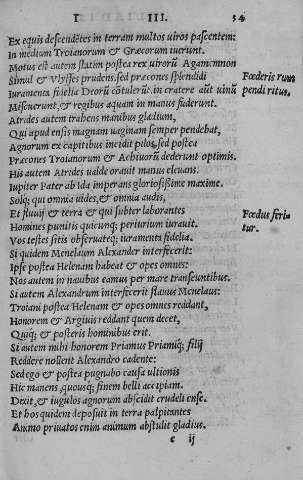 I III. 54
Ex equis descendẽtes in terram multos uiros pascentem:
In medium Troianorum & Græcorum iuerunt.
Motus est autem statim postea rex uirorũ Agamemnon
Simul & Vlysses prudens. sed præcones splendidi
Fœderis rum
Iuramenta fidelia Deorũ cõtulerũt. in cratere aũt uinũ
pendi ritus.
Miscuerunt, & regibus aquam in manus fuderunt.
Atrides autem trahens manibus gladium,
Qui apud ensis magnam uaginam semper pendebat,
Agnorum ex capitibus incidit pilos, sed postea
Præcones Troianorum & Achiuorũ dederunt optimis.
His autem Atrides ualde orauit manus eleuans.
Iupiter Pater ab Ida imperans gloriosissime maxime.
Solq; qui omnia uides, & omnia audis,
Et fluuij & terra & qui subter laborantes
Fœdus feri=
Homines punitis quicunq; periurium iurauit.
tur.
Vos testes sitis obseruateq; iuramenta fidelia.
Si quidem Menelaum Alexander interfecerit:
Ipse postea Helenam habeat & opes omnes:
Nos autem in nauibus eamus per mare transeuntibus.
Si autem Alexandrum interfecerit flauus Menelaus:
Troiani postea Helenam & opes omnes reddant,
Honorem & Argiuis reddant quem decet,
Quiq; & posteris hominibus erit.
Si autem mihi honorem Priamus Priamiq; filij
Reddere nollent Alexandro cadente:
Sed ego & postea pugnabo causa ultionis
Hic manens, quousq; finem belli accipiam.
Dixit, & iugulos agnorum abscidit crudeli ense.
Et hos quidem deposuit in terra palpitantes
Animo priuatos enim animum abstulit gladius.
c ij